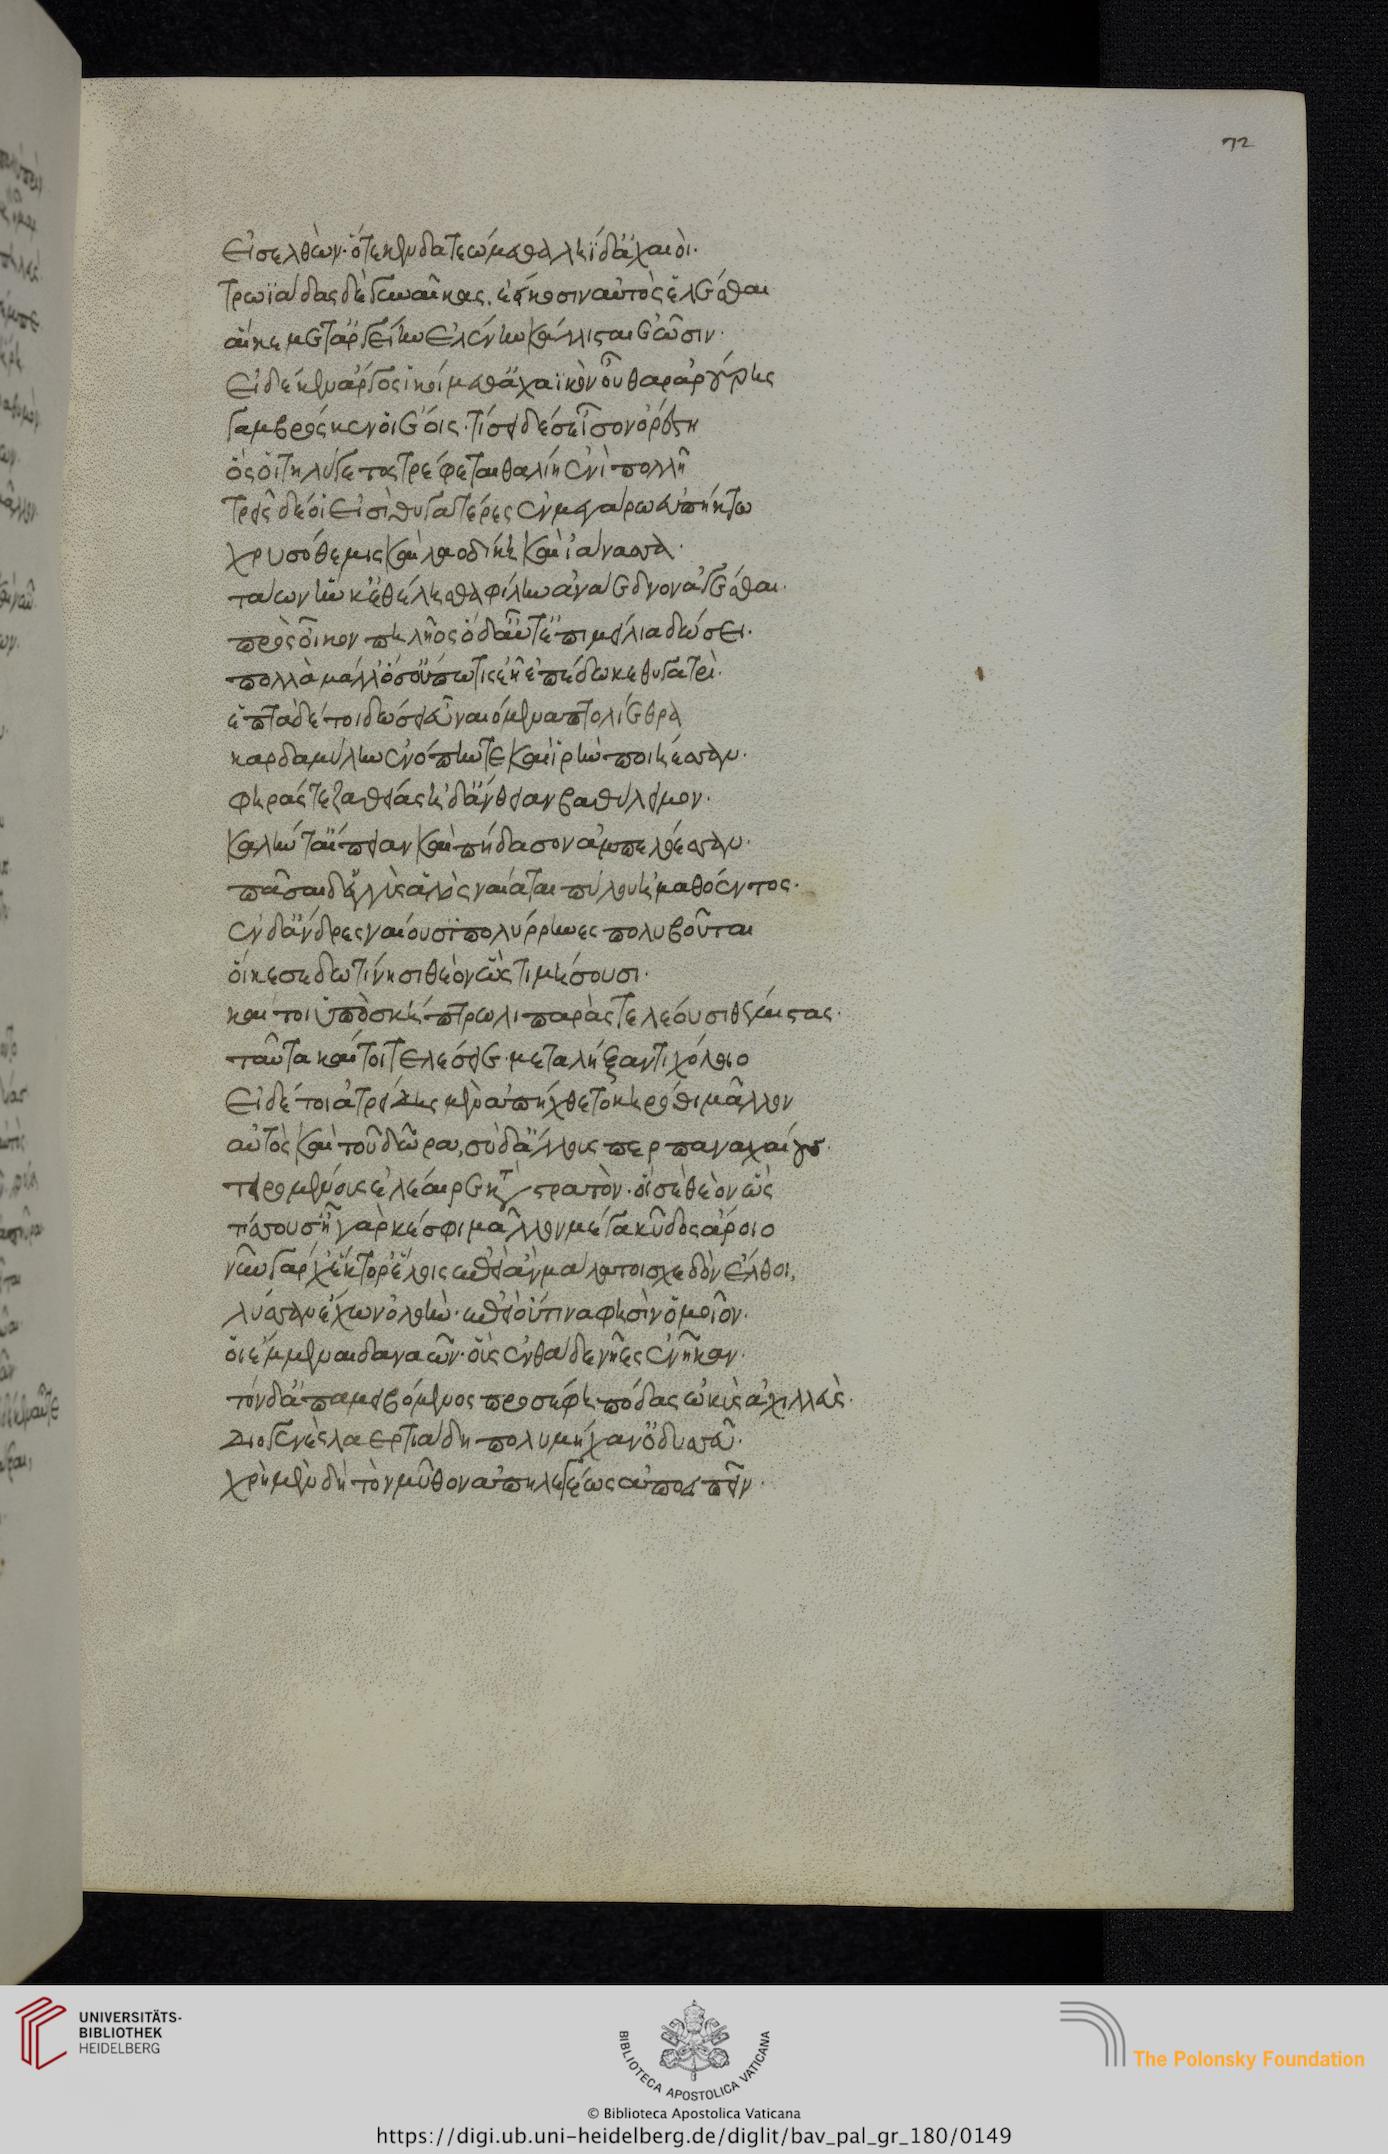 72
εἰσελθὼν· ὅτε κεν δατεώμεθα ληΐδ' ἀχαιοὶ·
τρωϊάδας δὲ γυναῖκας, ἐείκοσιν αὐτὸς ἑλέσθαι
αἵ κε μετ' ἀργείην ἑλένην κάλλισται ἔωσιν·
εἰ δέ κεν ἄργος ἱκοίμεθ' ἀχαϊκὸν οὖθαρ ἀρούρης
γαμβρός κεν οἱ ἔοις· τίσει δέ σε ἶσον ὀρέστη
ὅς οἱ τηλύγετος τρέφεται θαλίῃ ἐνὶ πολλῇ
τρεῖς δέ οἱ εἰσὶ θυγατέρες ἐν μεγάρω εὐπήκτω
χρυσόθεμις καὶ λαοδίκη καὶ ἰάνασσα·
τάων ἥν κ' ἐθέλησθα φίλην ἀνάεδνον ἄγεσθαι·
πρὸς οἶκον πηλῆος ὁ δ' αὖτ' ἔπι μείλια δώσει·
πολλὰ μάλ' ὅσ' οὔπω τις ἑῇ ἐπέδωκε θυγατρὶ·
ἑπτὰ δέ τοι δώσει εὖ ναιόμενα πτολίεθρα
καρδαμύλην ἐνόπην τε καὶ ἱρὴν ποιήεσσαν·
φηράς τε ζαθεάς ἠδ' ἄνθειαν βαθύλειμον·
καλήν τ' αἴπειαν καὶ πήδασον ἀμπελόεσσαν·
πᾶσαι δ' ἐγγὺς ἁλὸς νέαται πύλου ἠμαθόεντος·
ἐν δ' ἄνδρες ναίουσι πολύρρηνες πολυβοῦται
οἵ κε σε δωτίνησι θεὸν ὣς τιμήσουσι·
καί τοι ὑπὸ σκήπτρω λιπαρὰς τελέουσι θέμιστας·
ταῦτα καί τοι τελέσειε· μεταλήξαντι χόλοιο
εἰ δέ τοι ἀτρείδης μὲν ἀπήχθετο κηρόθι μᾶλλον
αὐτὸς καὶ τοῦ δῶρα, σὺ δ' ἄλλους περ παναχαιούς·
τειρομένοις ἐλέαιρε κατὰ στρατὸν· οἵ σε θεὸν ὣς
τίσουσ' ἦ γὰρ κέ σφι μάλλον μέγα κῦδος ἄροιο
νῦν γάρ χ' ἕκτορ' ἕλοις ἐπεὶ ἂν μάλα τοι σχεδὸν ἔλθοι,
λύσσαν ἔχων ὀλοὴν· ἐπεὶ οὔτινα φησὶν ὁμοῖον·
οἷ ἔμμεναι δαναῶν· οὓς ἐνθάδε νῆες ἔνεικαν·
τόν δ' ἀπαμειβόμενος προσέφη πόδας ὠκὺς ἀχιλλεὺς·
διογενὲς λαερτιάδη πολυμήχαν' ὀδυσσεῦ·
χρὴ μὲν δὴ τὸν μῦθον ἀπηλεγέως ἀποειπεῖν·
UNIVERSITÄTS-
BIBLIOTHEK
HEIDELBERG
BIBLIOTECA APOSTOLICA VATICANA
The Polonsky Foundation
© Biblioteca Apostolica Vaticana
https://digi.ub.uni-heidelberg.de/diglit/bav_pal_gr_180/0149